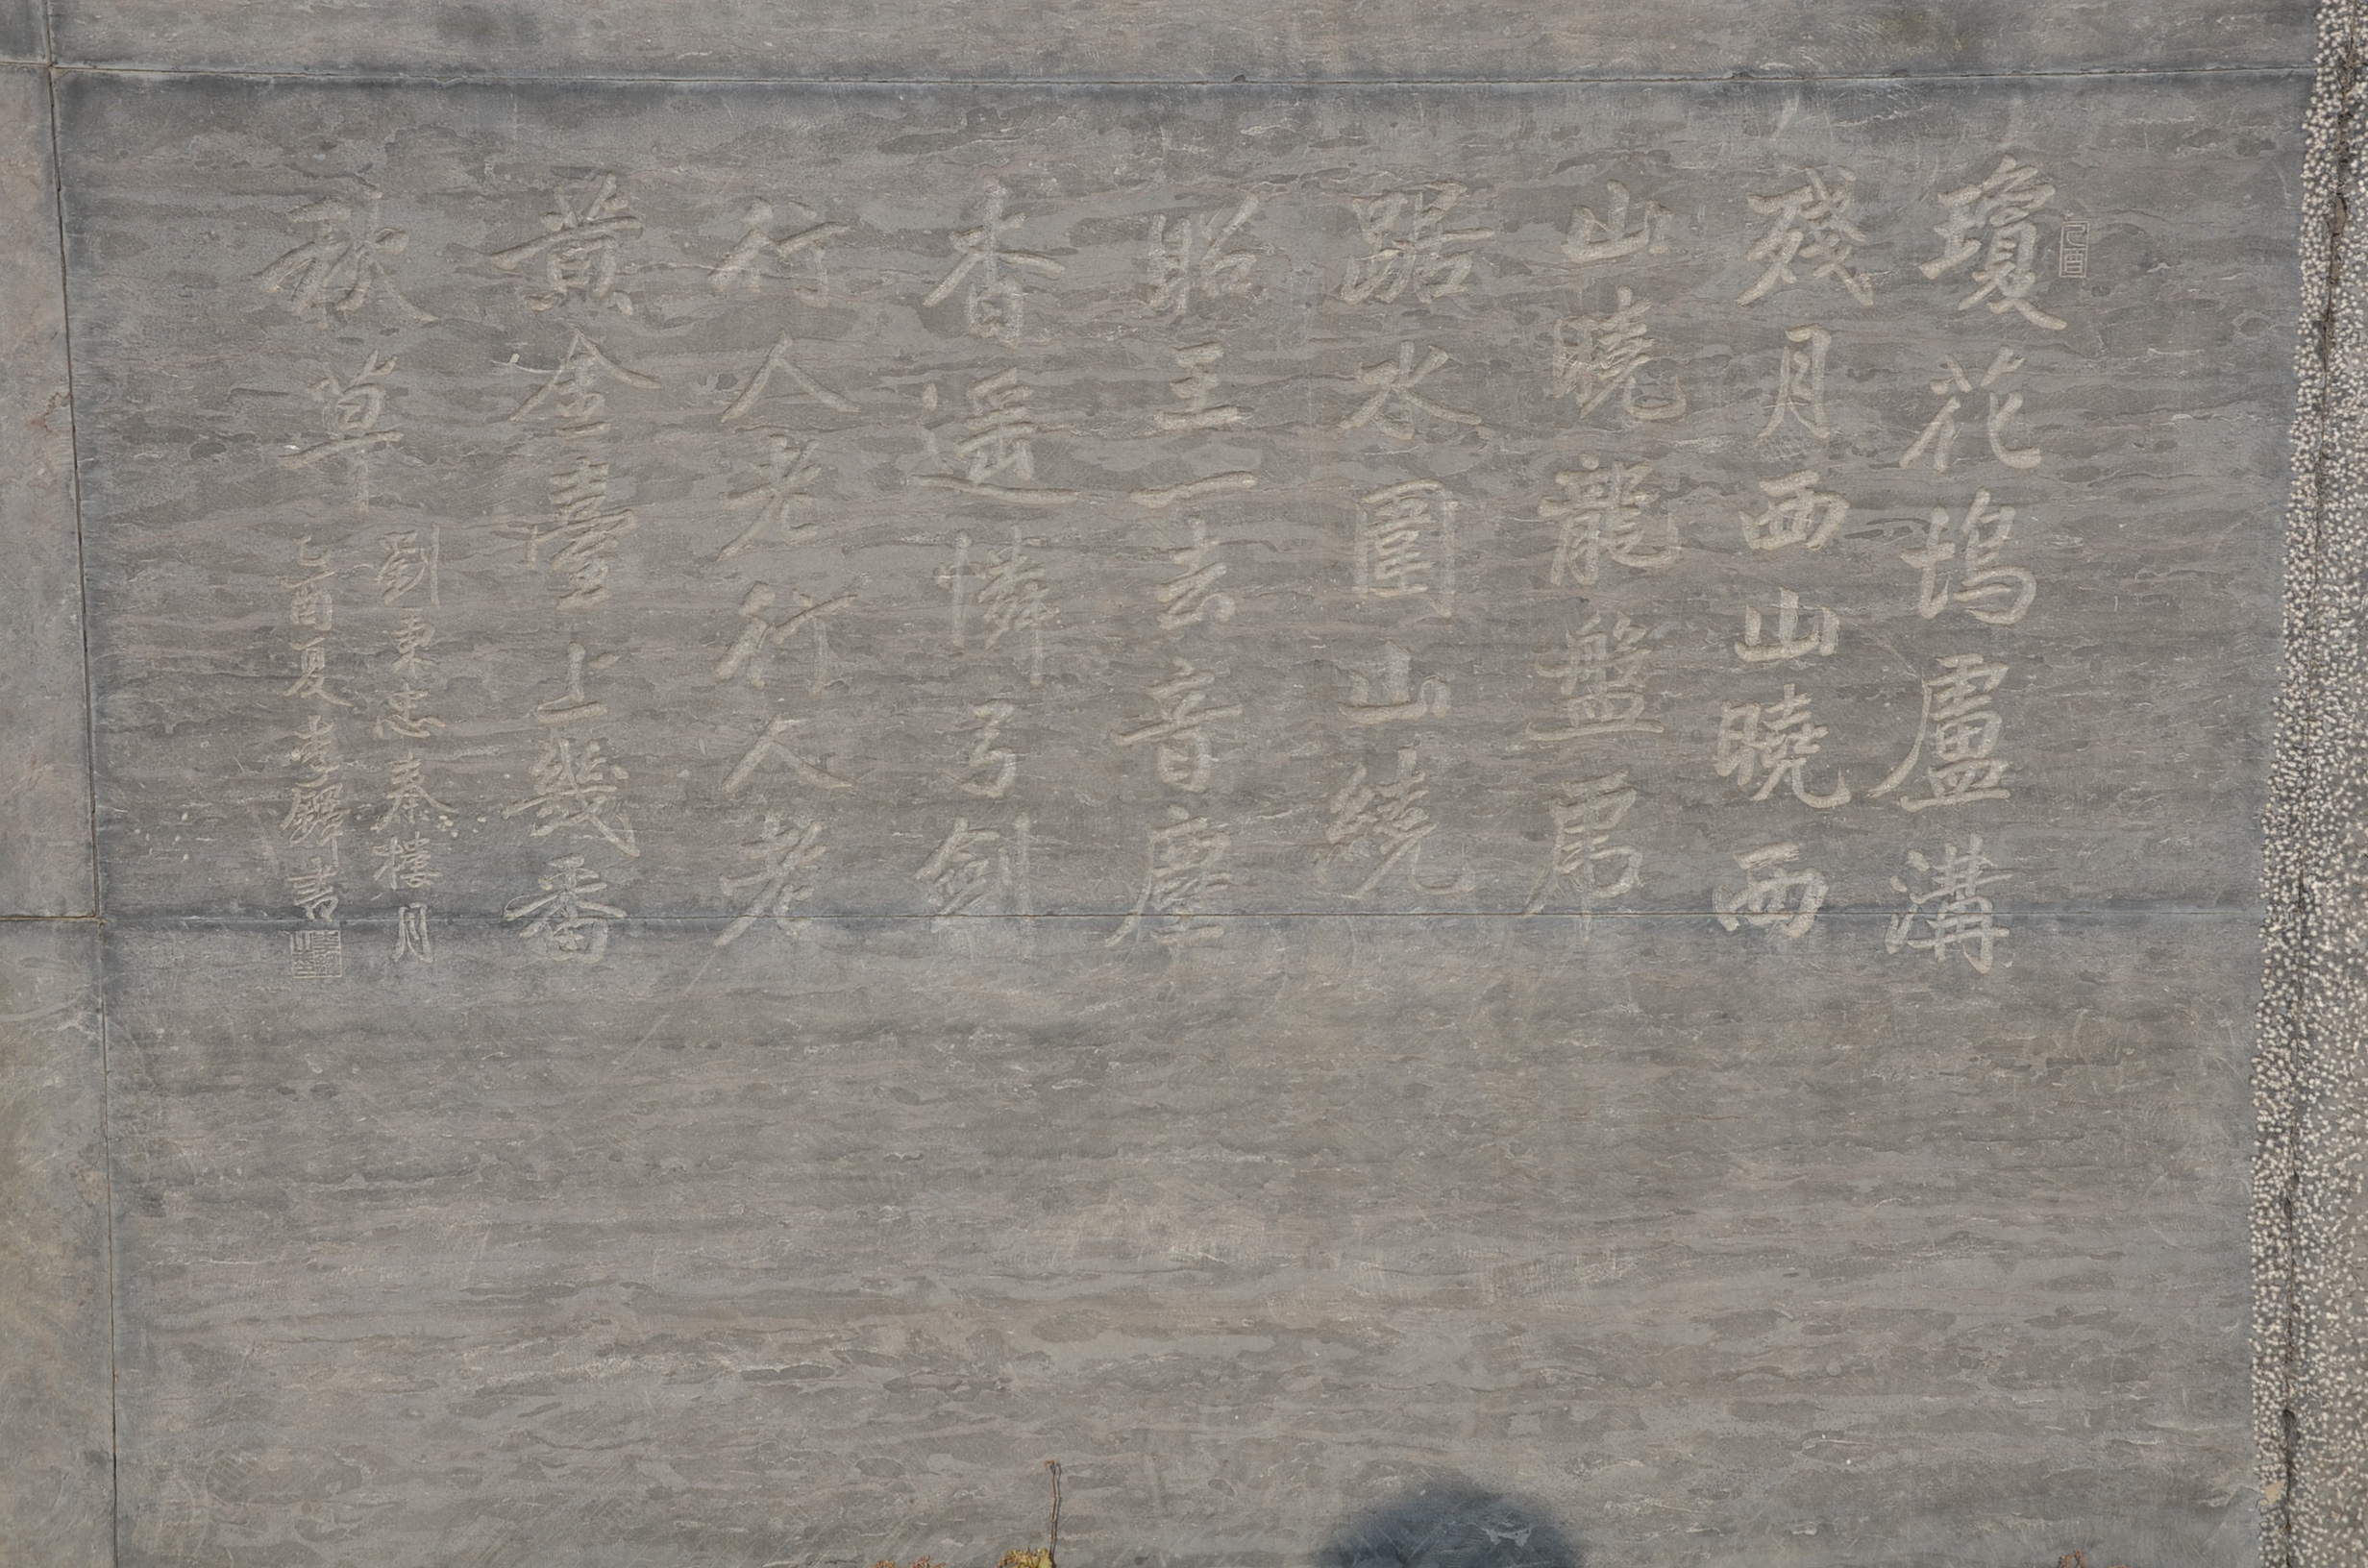 瓊花塢盧溝
殘月西山曉西
山曉龍盤虎
踞水圍山繞
昭王一去音塵
杳遥憐弓劍
行人老行人老
黄金臺上幾番
秋草
劉秉忠秦樓月
乙酉夏李鐸書